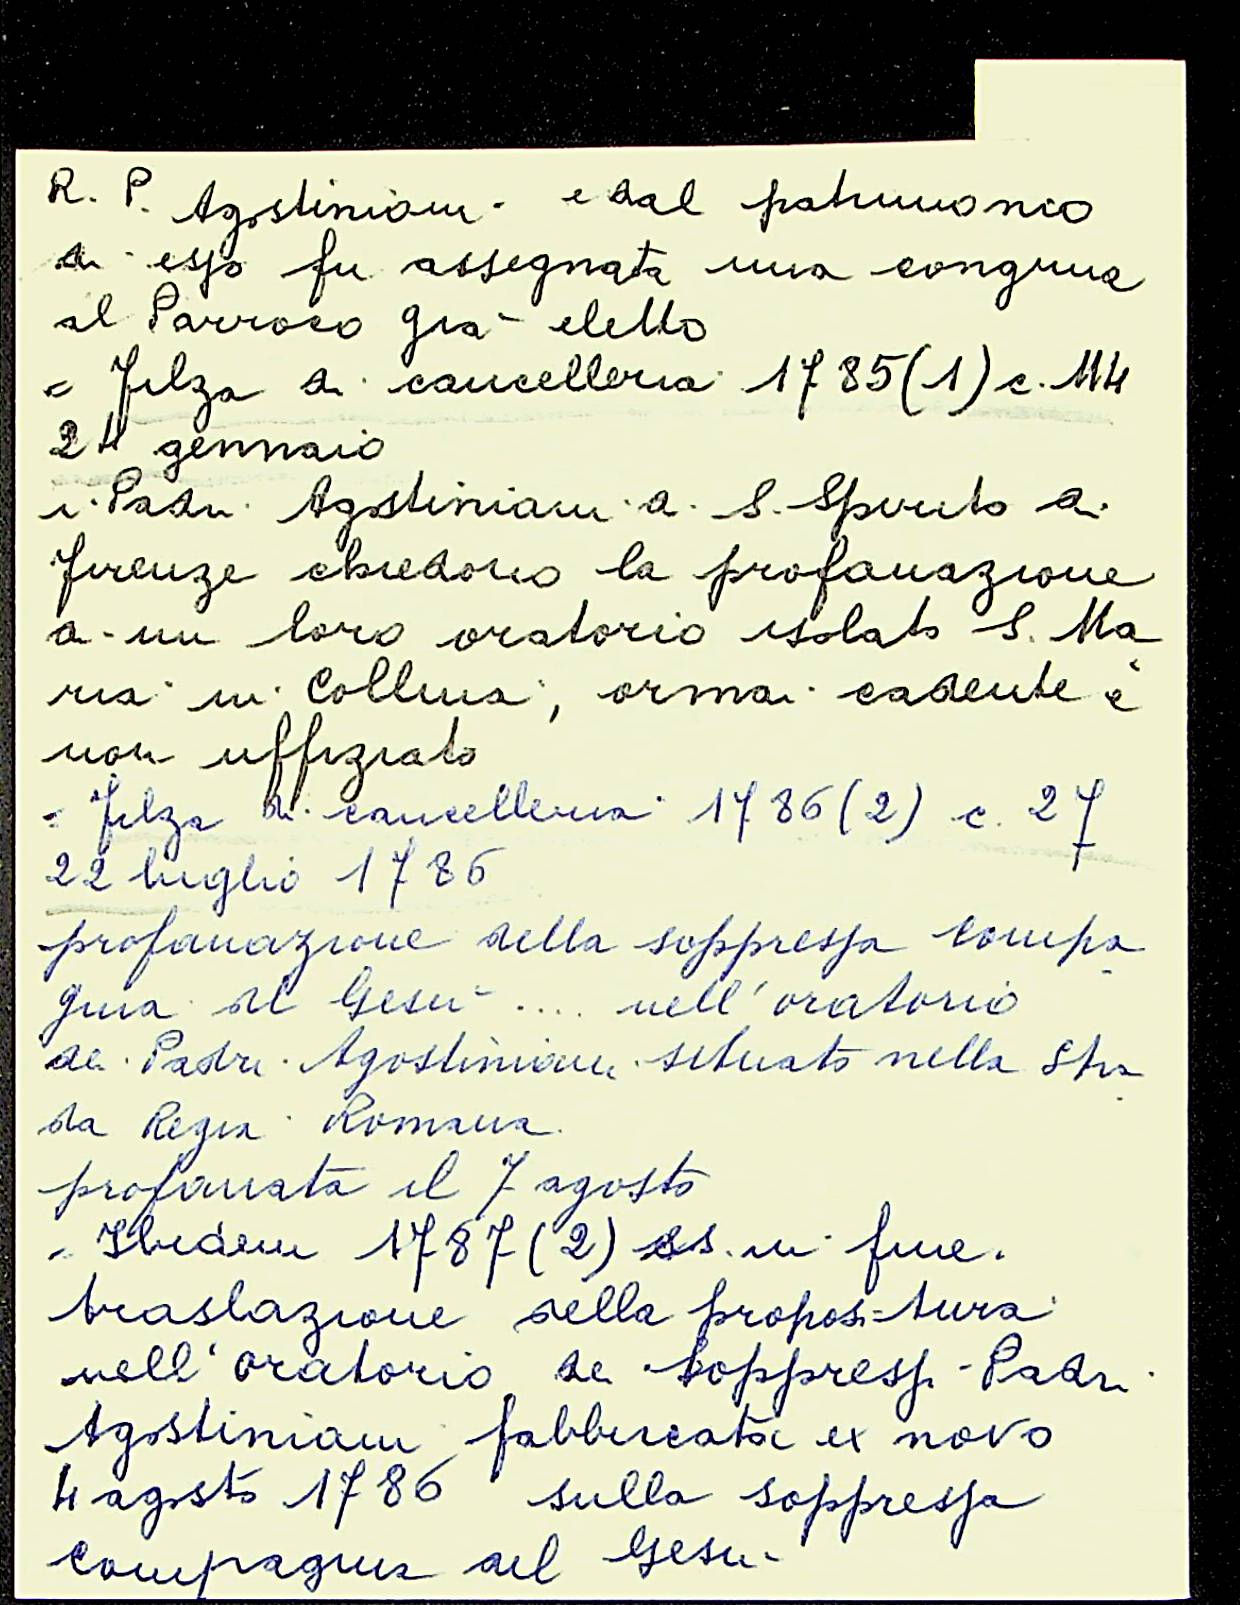 R. P. Agostiniani e dal patrimonio
di esso fu assegnata una congrua
al Parroco già eletto
= Filza di cancelleria 1785(1) c. 114
24 gennaio
i Padri Agostiniani di S. Spirito di
Firenze chiedono la profanazione
di un loro oratorio isolato S. Ma
ria in Collina, ormai cadente e
non uffiziato
= Filza di cancelleria 1786(2) c. 27
22 luglio 1786
profanazione della soppressa Compa
gnia del Gesù .... nell'oratorio
dei Padri Agostiniani situato nella Stra
da Regia Romana.
profanata il 7 agosto
= Ibidem 1787(2) in fine.
traslazione della propositura
nell'oratorio dei soppressi Padri
Agostiniani fabbricata ex novo
4 agosto 1786 sulla soppressa
compagnia del Gesù